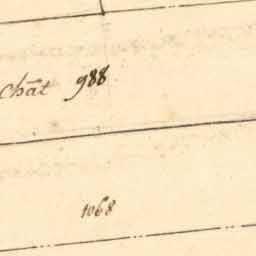 chãt 988
1068